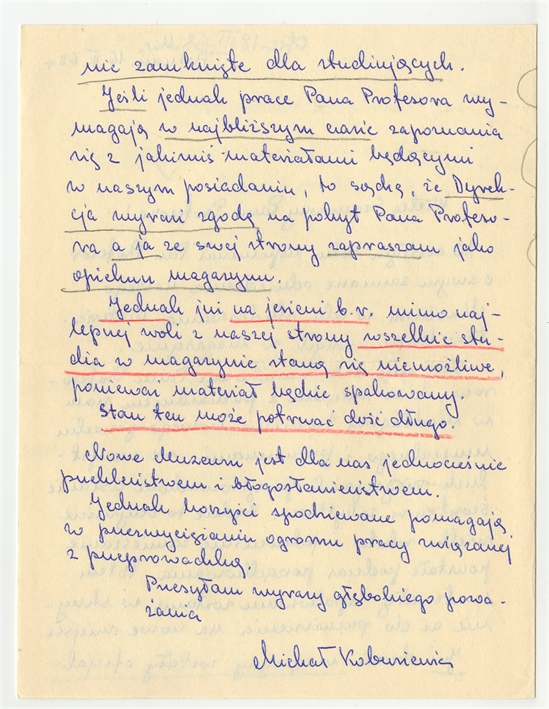 nie zamknięte dla studiujących.
Jeśli jednak prace Pana Profesora wy-
magają w najbliższym czasie zapoznania
się z jakimiś materiałami będącymi
w naszym posiadaniu, to sądzę, że Dyrek-
cja wyrazi zgodę na pobyt Pana Profeso-
ra a ja ze swej strony zapraszam jako
opiekun magazynu.
Jednak już na jesieni b.r. mimo naj-
lepszej woli z naszej strony wszelkie stu-
dia w magazynie staną się niemożliwe,
ponieważ materiał będzie spakowany.
Stan ten może potrwać dość długo.
Nowe Muzeum jest dla nas jednocześnie
przekleństwem i błogosławieństwem.
Jednak korzyści spodziewane pomagają
w przezwyciężaniu ogromu pracy związanej
z przeprowadzką.
Przesyłam wyrazy głębokiego powa-
żania
Michał